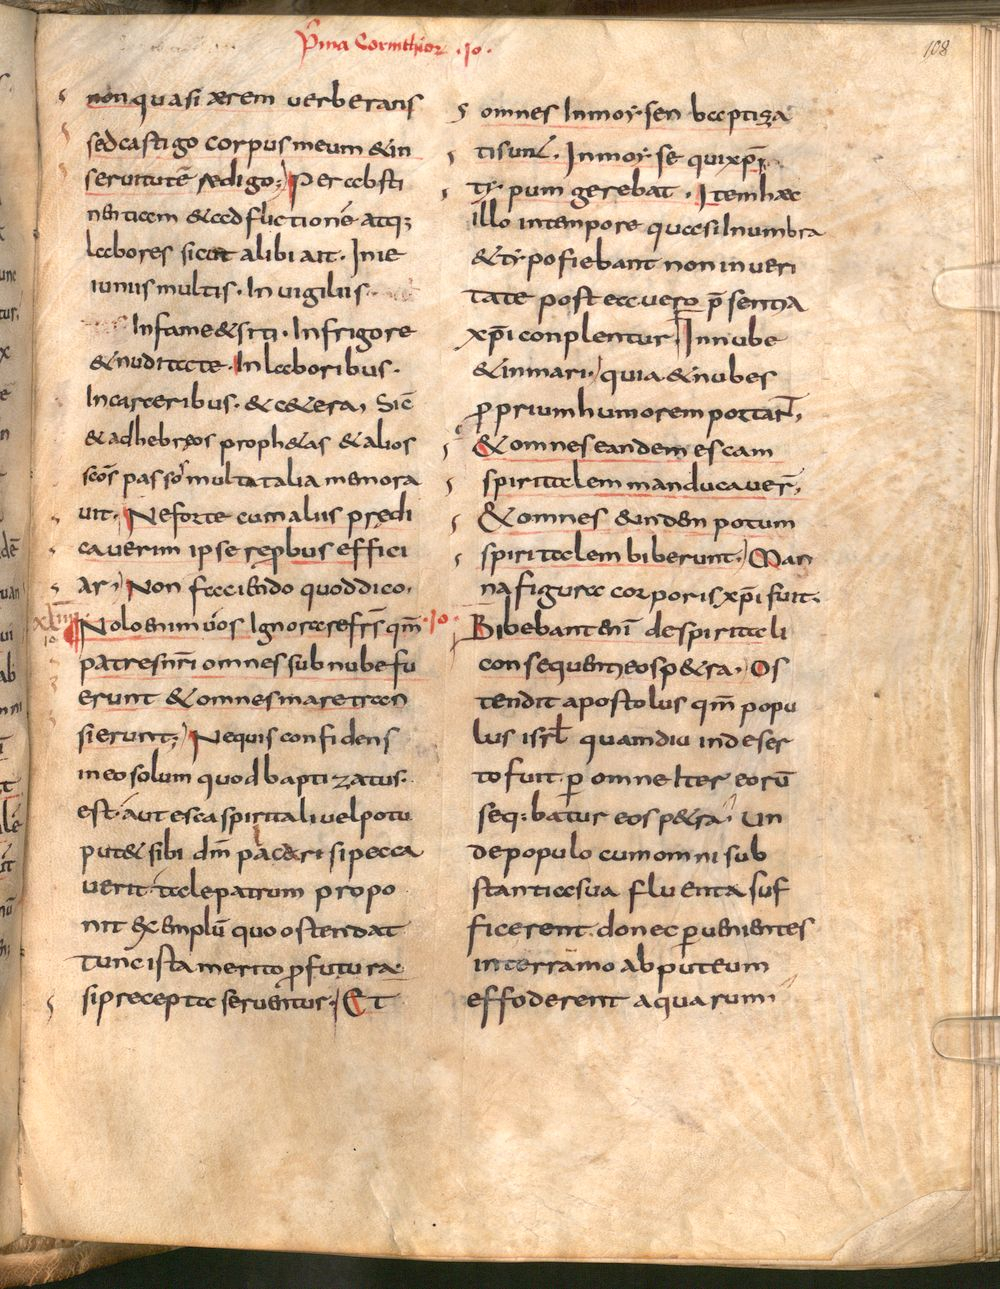 P̄ma Corinthior .10.
108
non quasi aerem verberans
sed castigo corpus meum & in
seruitutē redigo; Per absti
nentiam & adflictionē atq;
labores sicut alibi ait. In ie
iuniis multis. In uigiliis
In fame & siti. In frigore
& nuditate. In laboribus.
In carceribus. & c&era, Sic̄
& ad hebreos proph&as & alios
sc̄os passos multa talia memora
uit. Ne forte cum aliis predi
cauerim ipse reprobus effici
ar, Non faciendo quod dico.
xliii
10
Nolo enim uos Ignorare fr̄s qm̄ .10.
patres nr̄i omnes sub nube fu
erunt & omnes mare tran
sierunt; Nequis confidens
in eo solum quod baptizatus.
est. aut esca spiritali uel potu
put& sibi dm̄ parcere si pecca
uerit. tale patrum propo
nit exemplū quo ostendat
tunc ista merito profutura.
si precepta seruentur. Et
omnes In moysen baptiza
ti sunt. In moyse qui xp̄i
typum gerebat. Item haec
illo in tempore quasi In umbra
& typo fiebant non in ueri
tate postea uero p̄sentia
xp̄i conplentur. In nube
& in mari. quia & nubes
proprium humorem portat,
& omnes eandem escam
spiritalem manducauer̄,
& omnes eundem potum
spiritalem biberunt. Man
na figura corporis xp̄i fuit.
Bibebant enī de spiritali
consequenti eos p&ra. Os
tendit apostolus qm̄ popu
lus isrl̄ quamdiu in deser
to fuit. per omne Iter eorū
seq;batur eos p&ra, un
de populo cum omni sub
stantia sua fluenta suf
ficerent. donec peruenientes
in terra moab puteum
effoderent aquarum